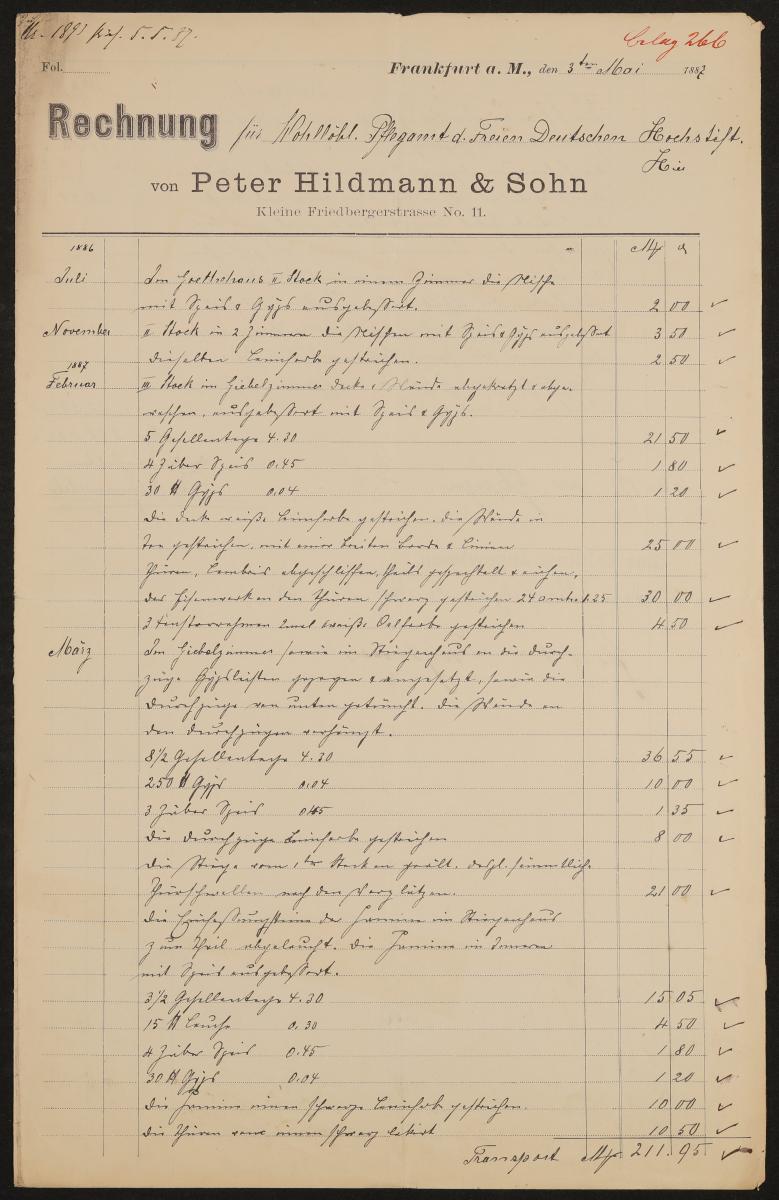 No. 1893 präs. 5.5.87.
Belag 266
Fol.
Frankfurt a. M., den 3ten Mai 1887
Rechnung für Wohllöbl. Pflegamt d. Freien Deutschen Hochstift.
Hier
von Peter Hildmann & Sohn
Kleine Friedbergerstrasse No. 11.
1886 M ₰
Juli Im Goethehaus II Stock in einem Zimmer die Nische
mit Speis & Gÿps ausgebessert. 2 00
November II Stock in 2 Zimmern die Nischen mit Speis & Gÿps ausgebessert 3 50
dieselben Leimfarbe gestrichen. 2 50
1887
Februar III Stock im Giebelzimmer Decke & Wände abgekratzt & abge-
waschen, ausgebessert mit Speis & Gÿps.
5 Gesellentage 4.30 21 50
4 Züber Speis 0.45 1 80
30 ℔ Gÿps 0.04 1 20
Die Decke weiße Leimfarbe gestrichen. die Wände in
Ton gestrichen, mit einer breiten Borde & Linien 25 00
Thüren, Lambris abgeschliffen, theils gespachtelt & eichen,
das Eisenwerk an den Thüren schwarz gestrichen 24 Ometer 1.25 30 00
3 Fensterrahmen 2mal weiße Oelfarbe gestrichen 4 50
März Im Giebelzimmer sowie im Stiegenhaus an die Durch-
züge Gÿpsleisten gezogen & angesetzt, sowie die
Durchzüge von unten getüncht. die Wände an
den Durchzügen
8 1/2 Gesellentage 4.30 36 55
250 ℔ Gÿps 0.04 10 00
3 Züber Speis 0.45 1 35
Die Durchzüge Leimfarbe gestrichen 8 00
Die Stiege vom 1ten Stock an geölt. desgl. sämmtliche
Thürschwellen nach den Vorplätzen. 21 00
Die der Kamine im Stiegenhaus
zum Theil abgelaucht. Die Kamine im Innern
mit Speis ausgebessert.
3 1/2 Gesellentage 4.30 15 05
15 ℔ Lauge 0.30 4 50
4 Züber Speis 0.45 1 80
30 ℔ Gÿps 0.04 1 20
Die Kamine innen schwarze Leimfarbe gestrichen. 10 00
Die Thüren innen schwarz lakirt 10 50
Transport M 211.95